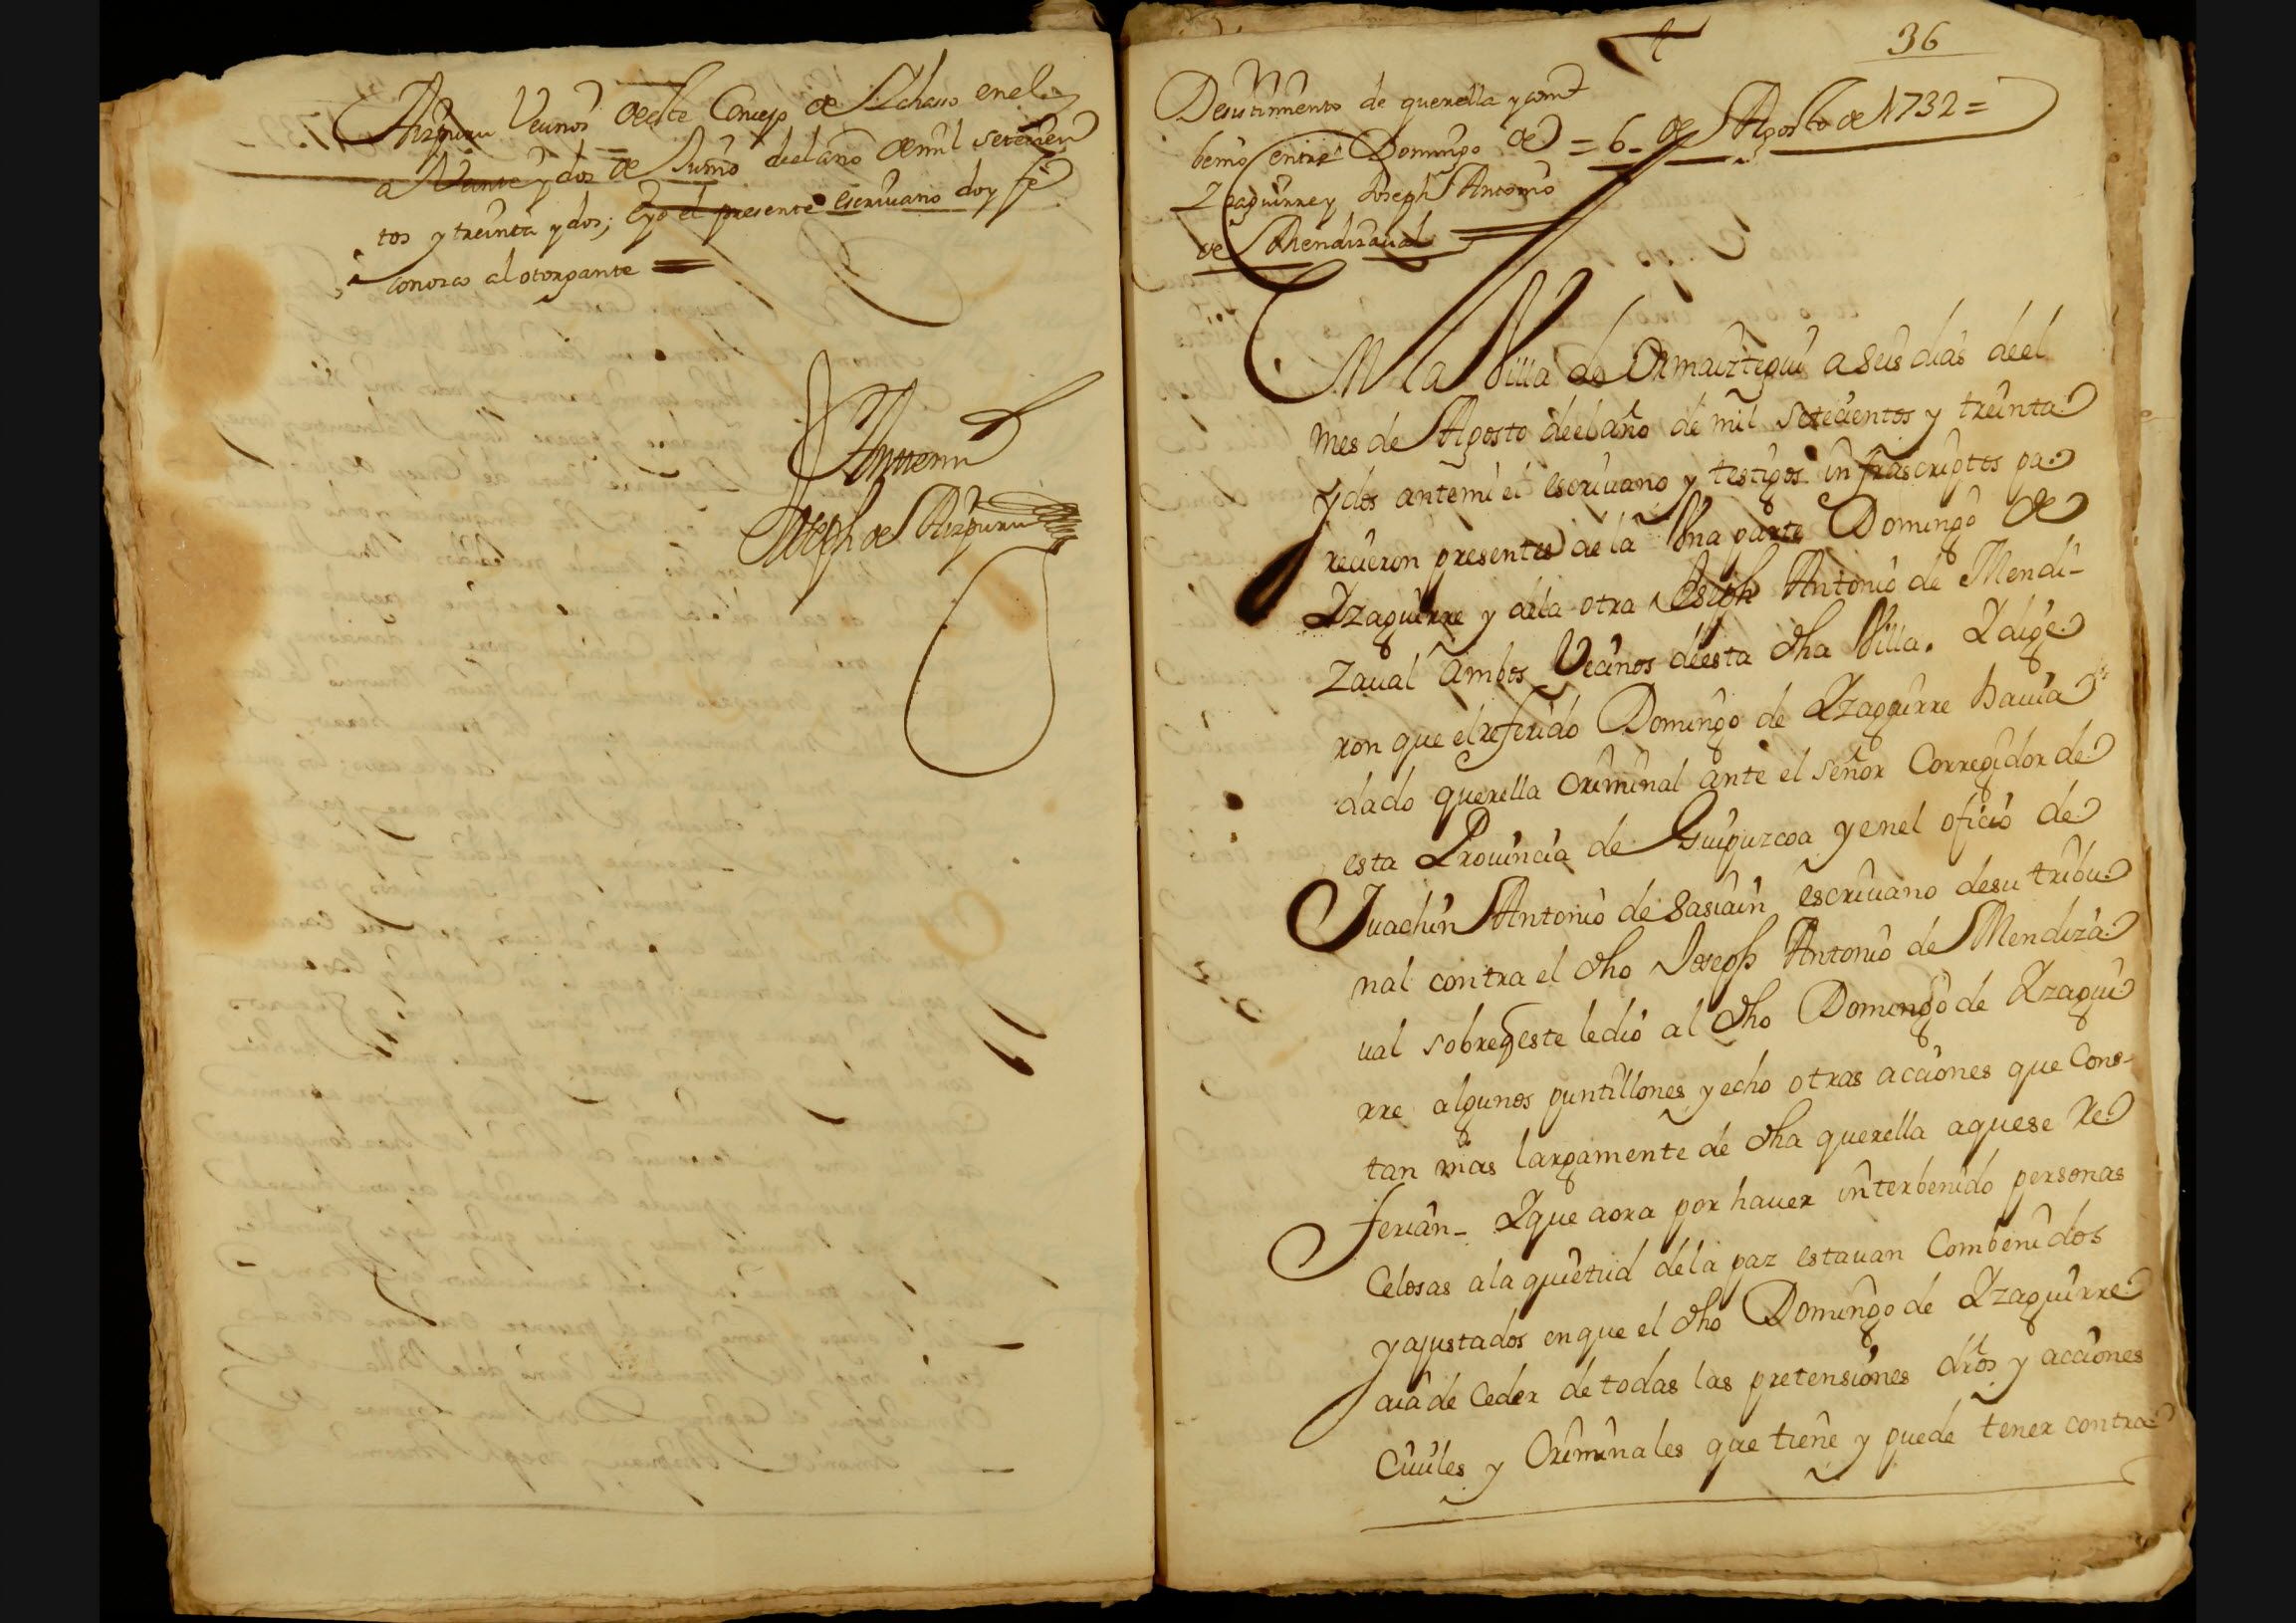 Aizpuru Vecinos de este Concejo de Ichaso en el
a Veinte y dos de Junio del año de mil setecien
tos y treinta y dos; Eyo el presente escriuano doy fe
conozco al otorgante =
Ante mi
Joseph de Aizpuru
36
Desistimiento de querella y comb
benio entre Domingo de
Yzaguirre y Joseph Antonio
de Mendizaual =
= 6 de Agosto de 1732 =
En la Villa de Ormaiztegui a seis dias de el
mes de Agosto de el año de mil setecientos y treinta
y dos ante mi el escriuano y testigos infrascriptos pa
recieron presentes de la Vna parte Domingo de
Yzaguirre y de la otra Joseph Antonio de Mendi-
zaual ambos Vecinos de esta dha Villa. Y dige
ron que el referido Domingo de Yzaguirre hauia
dado querella Criminal ante el señor Corregidor de
esta Prouincia de Guipuzcoa y en el oficio de
Juachin Antonio de Sasiain escriuano de su tribu
nal contra el dho Joseph Antonio de Mendiza
ual sobre q este le dio al dho Domingo de Yzagui
rre algunos puntillones y echo otras acciones que Cons-
tan mas largamente de dha querella a que se Re
ferian- Y que aora por hauer interbenido personas
Celosas a la quietud de la paz estauan Combenidos
y ajustados en que el dho Domingo de Yzaguirre
aia de Ceder de todas las pretensiones dros y acciones
Ciuiles y Criminales que tiene y puede tener contra